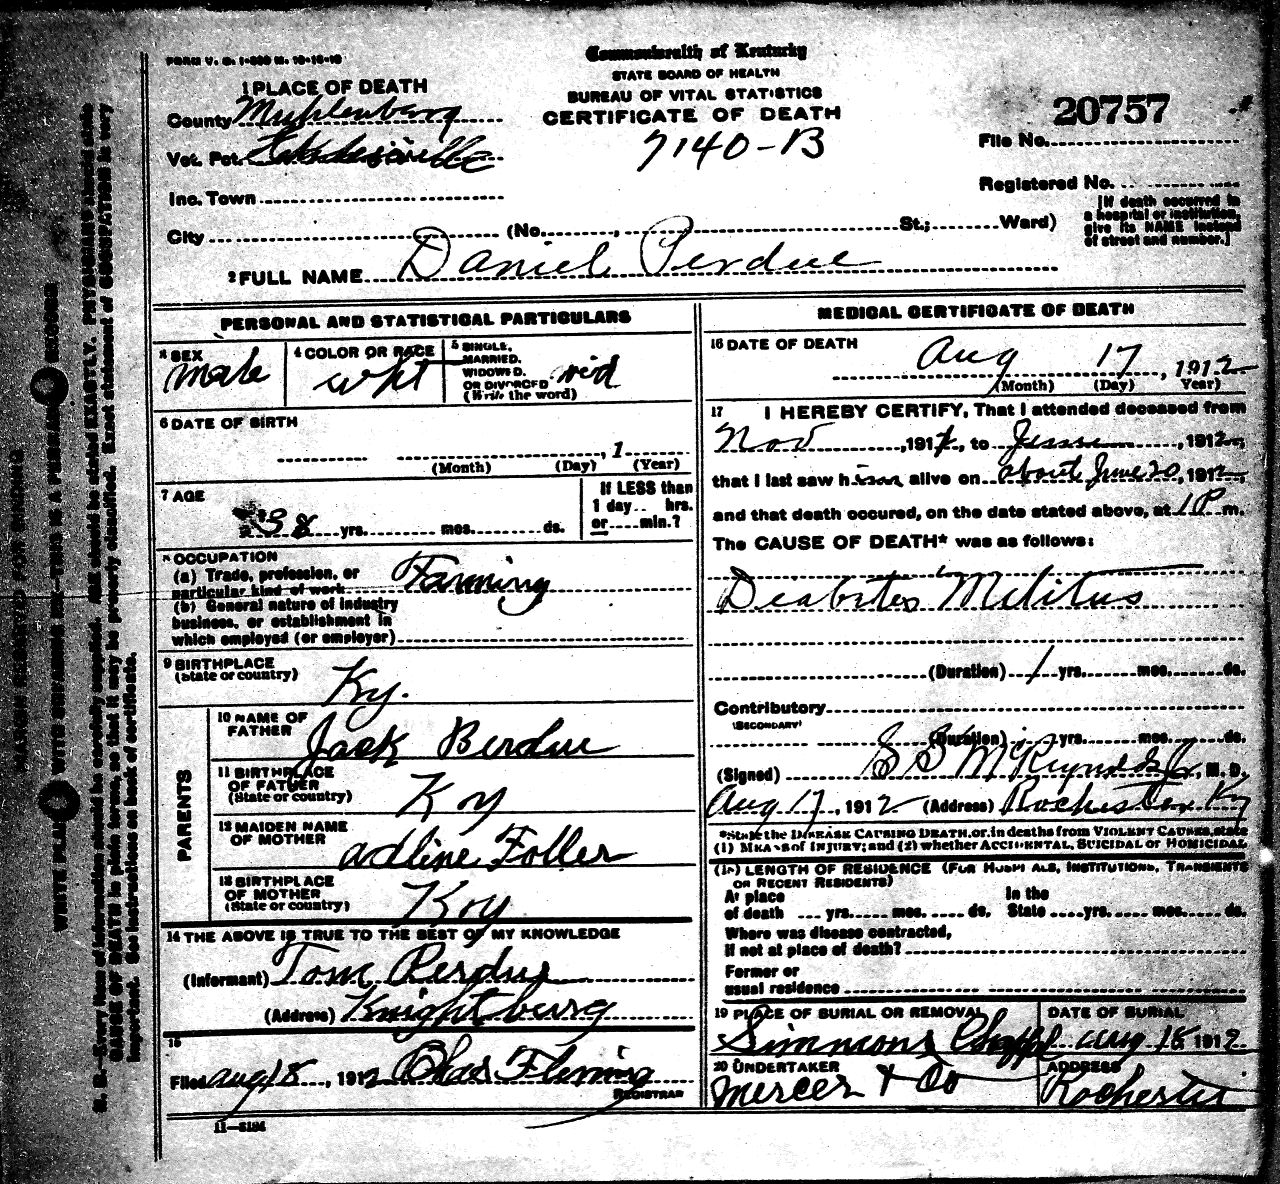 FORM V. S. 1-300 M. 10-16-10
Commonwealth of Kentucky
STATE BOARD OF HEALTH
BUREAU OF VITAL STATISTICS
CERTIFICATE OF DEATH
7140-B
1 PLACE OF DEATH
County Muhlenberg
Vot. Pct.
Inc. Town
City (No. , St.; Ward)
20757
File No.
Registered No.
[If death occurred in
a hospital or institution,
give its NAME instead
of street and number.]
2 FULL NAME Daniel Perdue
PERSONAL AND STATISTICAL PARTICULARS
3 SEX
Male
4 COLOR OR RACE
wht
5 SINGLE,
MARRIED,
WIDOWED,
OR DIVORCED
(Write the word)
wid
6 DATE OF BIRTH
, 1
(Month) (Day) (Year)
7 AGE
38 yrs. mos. ds.
If LESS than
1 day.. hrs.
or....min.?
8 OCCUPATION
(a) Trade, profession, or
particular kind of work Farming
(b) General nature of industry
business, or establishment in
which employed (or employer)
9 BIRTHPLACE
(State or country)
Ky.
PARENTS
10 NAME OF
FATHER
Jack Berdue
11 BIRTHPLACE
OF FATHER
(State or country)
Ky
12 MAIDEN NAME
OF MOTHER
Adline Foller
13 BIRTHPLACE
OF MOTHER
(State or country)
Ky
14 THE ABOVE IS TRUE TO THE BEST OF MY KNOWLEDGE
(Informant) Tom Perdue
(Address) Knightsberg
15
Filed Aug 18, 1912 Chas Fleming
REGISTRAR
11-5184
MEDICAL CERTIFICATE OF DEATH
16 DATE OF DEATH
Aug 17, 1912
(Month) (Day) Year)
17 I HEREBY CERTIFY, That I attended deceased from
Nov, 191 , to June, 1912,
that I last saw him alive on about June 20, 1912,
and that death occured, on the date stated above, at 1 P m.
The CAUSE OF DEATH* was as follows:
Deabites Melitus
(Duration) 1 yrs. mos. ds.
Contributory
(SECONDARY)
(Duration) yrs. mos. ds.
(Signed) S S McReynolds Jr, M. D.
Aug 17, 1912 (Address) Rochester Ky
*State the DISEASE CAUSING DEATH, or, in deaths from VIOLENT CAUSES, state
(1) MEANS of INJURY; and (2) whether ACCIDENTAL, SUICIDAL or HOMICIDAL
(18) LENGTH OF RESIDENCE (FOR HOSPITALS, INSTITUTIONS, TRANSIENTS
OR RECENT RESIDENTS)
At place In the
of death yrs. mos. ds. State yrs. mos. ds.
Where was disease contracted,
if not at place of death?
Former or
usual residence
19 PLACE OF BURIAL OR REMOVAL
Simmons Chappl
DATE OF BURIAL
Aug 18 1912
20 UNDERTAKER
Mercer & Co
ADDRESS
Rochester
MARGIN RESERVED FOR BINDING
WRITE PLAINLY WITH UNFADING INK-THIS IS A PERMANENT RECORD
N. B.-Every item of information should be carefully supplied. AGE should be stated EXACTLY. PHYSICIANS should state
CAUSE OF DEATH in plain terms, so that it may be properly classified. Exact statement of OCCUPATION is very
important. See instructions on back of certificate.